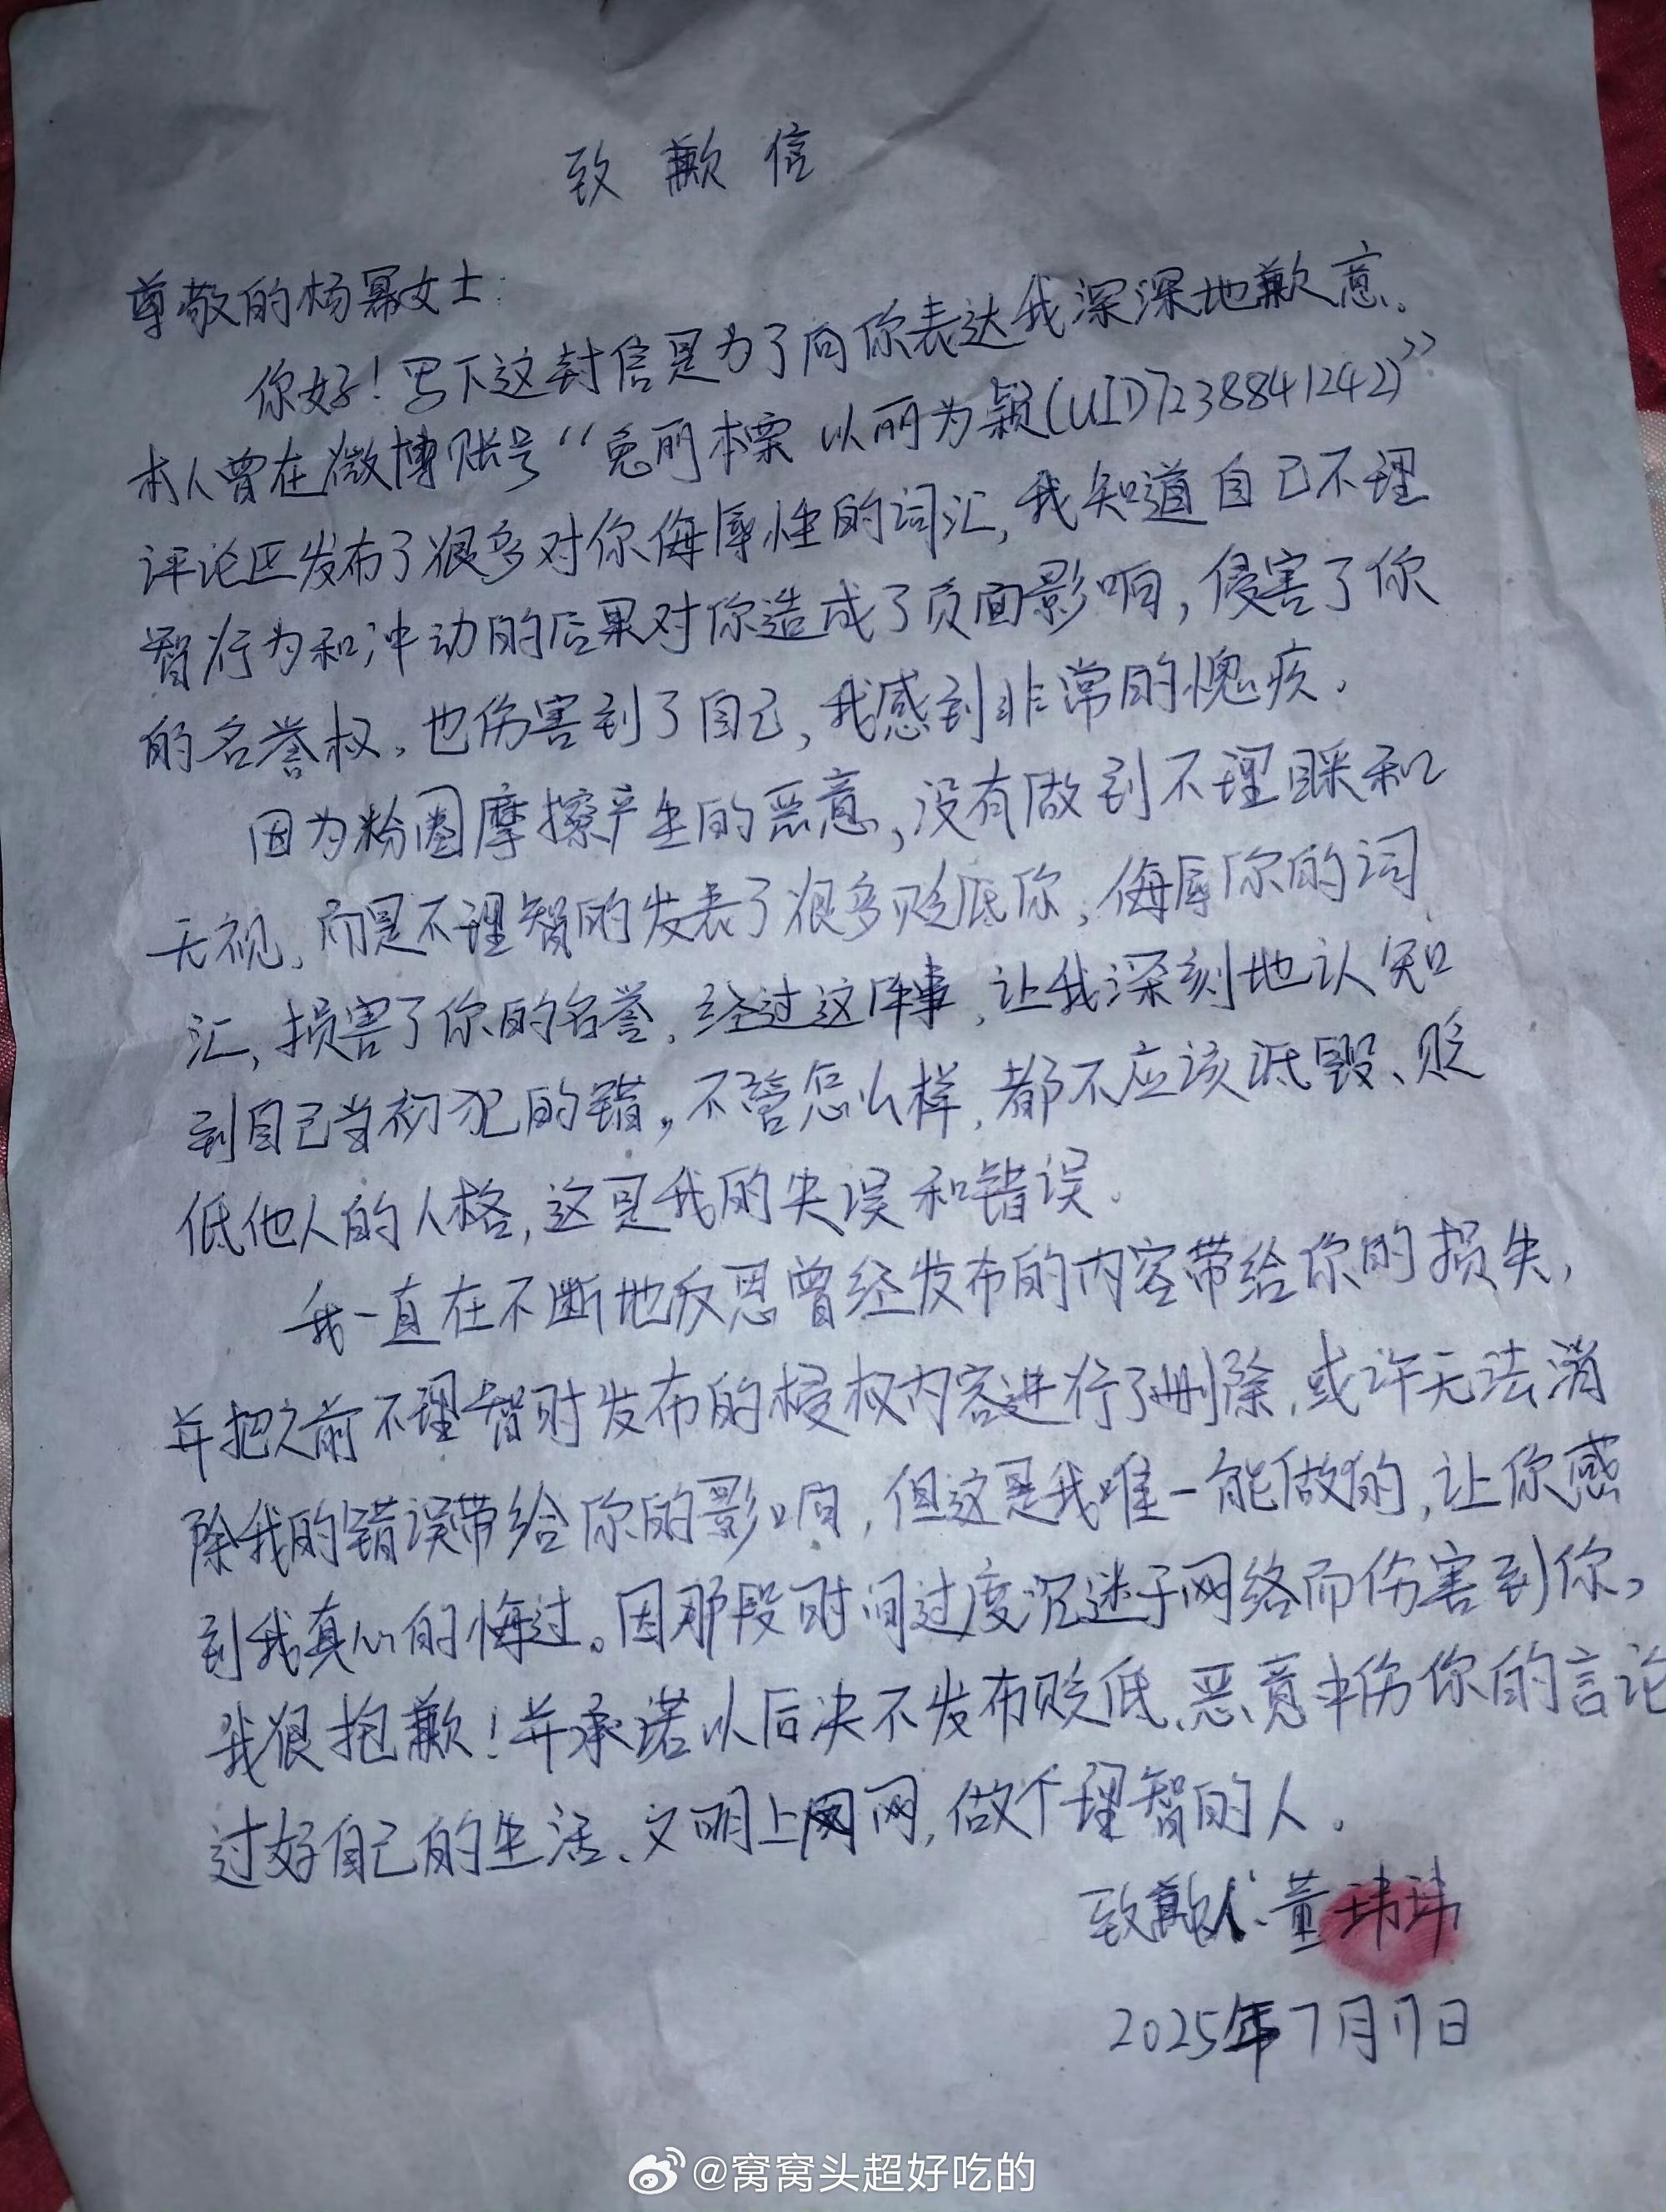 致歉信
尊敬的杨幂女士：
你好！写下这封信是为了向你表达我深深地歉意。
本人曾在微博账号“兔丽本栗 以丽为颖(UID7238841242)”
评论区发布了很多对你侮辱性的词汇，我知道自己不理
智行为和冲动的后果对你造成了负面影响，侵害了你
的名誉权，也伤害到了自己，我感到非常的愧疚。
因为粉圈摩擦产生的恶意，没有做到不理睬和
无视，而是不理智的发表了很多贬低你，侮辱你的词
汇，损害了你的名誉，经过这件事，让我深刻地认知
到自己当初犯的错，不管怎么样，都不应该诋毁、贬
低他人的人格，这是我的失误和错误。
我一直在不断地反思曾经发布的内容带给你的损失，
并把之前不理智时发布的侵权内容进行了删除，或许无法消
除我的错误带给你的影响，但这是我唯一能做的，让你感
到我真心的悔过。因那段时间过度沉迷于网络而伤害到你，
我很抱歉！并承诺以后决不发布贬低、恶意中伤你的言论
过好自己的生活、文明上网，做个理智的人。
致歉人：董玮玮
2025年7月17日
@窝窝头超好吃的